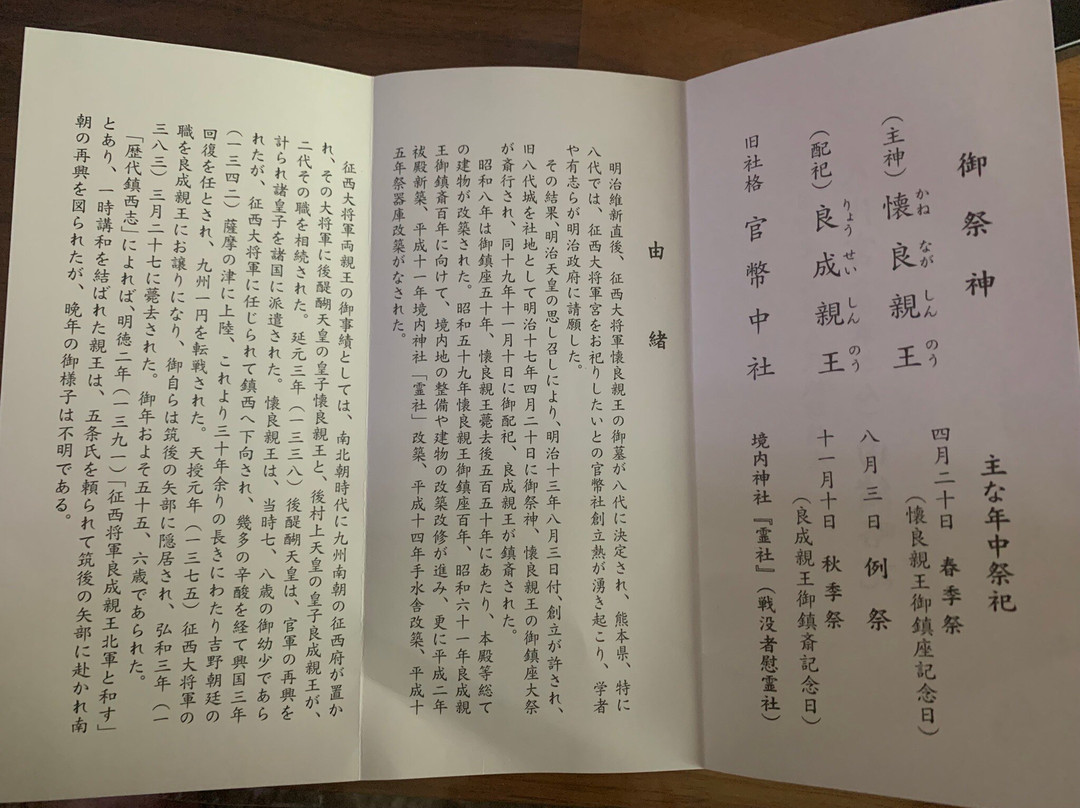 御祭神
(主神)懐良親王
かねながしんのう
(配祀)良成親王
りょうせいしんのう
旧社格 官幣中社
主な年中祭祀
四月二十日 春季祭
(懐良親王御鎮座記念日)
八月三日 例祭
十一月十日 秋季祭
(良成親王御鎮斎記念日)
境内神社『霊社』(戦没者慰霊社)
由緒
明治維新直後、征西大将軍懐良親王の御墓が八代に決定され、熊本県、特に
八代では、征西大将軍宮をお祀りしたいとの官幣社創立熱が湧き起こり、学者
や有志らが明治政府に請願した。
その結果、明治天皇の思し召しにより、明治十三年八月三日付、創立が許され、
旧八代城を社地として明治十七年四月二十日に御祭神、懐良親王の御鎮座大祭
が斎行され、同十九年十一月十日に御配祀、良成親王が鎮斎された。
昭和八年は御鎮座五十年、懐良親王薨去後五百五十年にあたり、本殿等総て
の建物が改築された。昭和五十九年懐良親王御鎮座百年、昭和六十一年良成親
王御鎮斎百年に向けて、境内地の整備や建物の改築改修が進み、更に平成二年
祓殿新築、平成十一年境内神社「霊社」改築、平成十四年手水舎改築、平成十
五年祭器庫改築がなされた。
征西大将軍両親王の御事績としては、南北朝時代に九州南朝の征西府が置か
れ、その大将軍に後醍醐天皇の皇子懐良親王と、後村上天皇の皇子良成親王が、
二代その職を相続された。延元三年(一三三八)後醍醐天皇は、官軍の再興を
計られ諸皇子を諸国に派遣された。懐良親王は、当時七、八歳の御幼少であら
れたが、征西大将軍に任じられて鎮西へ下向され、幾多の辛酸を経て興国三年
(一三四二)薩摩の津に上陸、これより三十年余りの長きにわたり吉野朝廷の
回復を任とされ、九州一円を転戦された。天授元年(一三七五)征西大将軍の
職を良成親王にお譲りになり、御自らは筑後の矢部に隠居され、弘和三年(一
三八三)三月二十七に薨去された。御年およそ五十五、六歳であられた。
「歴代鎮西志」によれば、明徳二年(一三九一)「征西将軍良成親王北軍と和す」
とあり、一時講和を結ばれた親王は、五条氏を頼られて筑後の矢部に赴かれ南
朝の再興を図られたが、晩年の御様子は不明である。